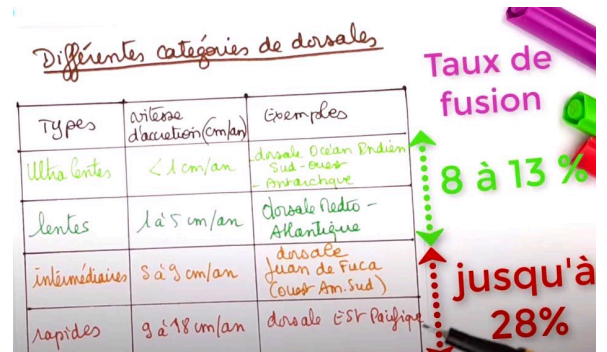 Différentes catégories de dorsales
Types
vitesse
d'accretion (cm/an)
Exemples
Ultra lentes
< 1 cm/an
- dorsale Océan Indien
Sud-ouest
- Antarctique
lentes
1 à 5 cm/an
dorsale Medio -
Atlantique
intérmédiaires
5 à 9 cm/an
dorsale
Juan de Fuca
(ouest Am. Sud)
rapides
9 à 18 cm/an
dorsale EST Pacifique
Taux de
fusion
8 à 13 %
jusqu'à
28%